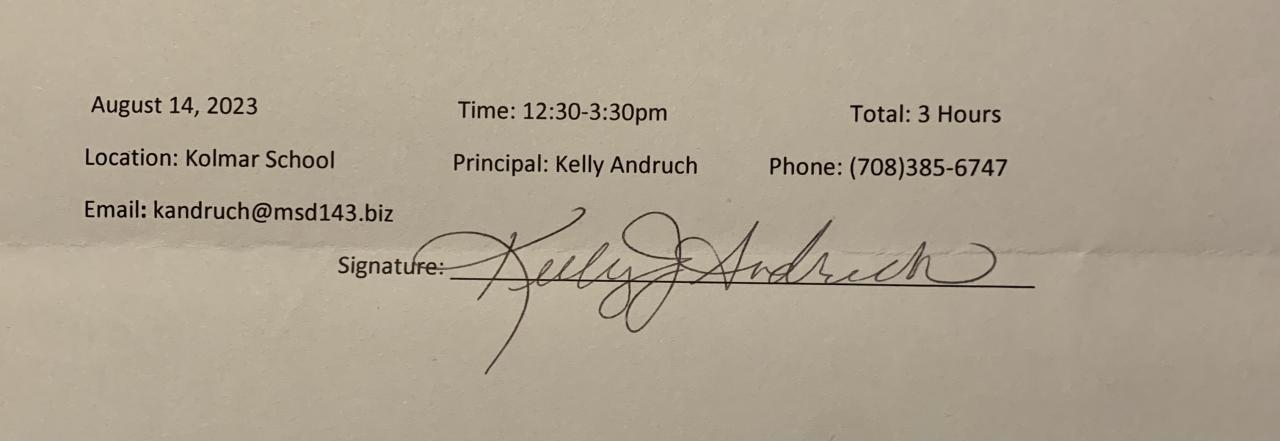 August 14, 2023 Time: 12:30-3:30pm Total: 3 Hours
Location: Kolmar School Principal: Kelly Andruch Phone: (708)385-6747
Email: kandruch@msd143.biz
Signature: Kelly J Andruch